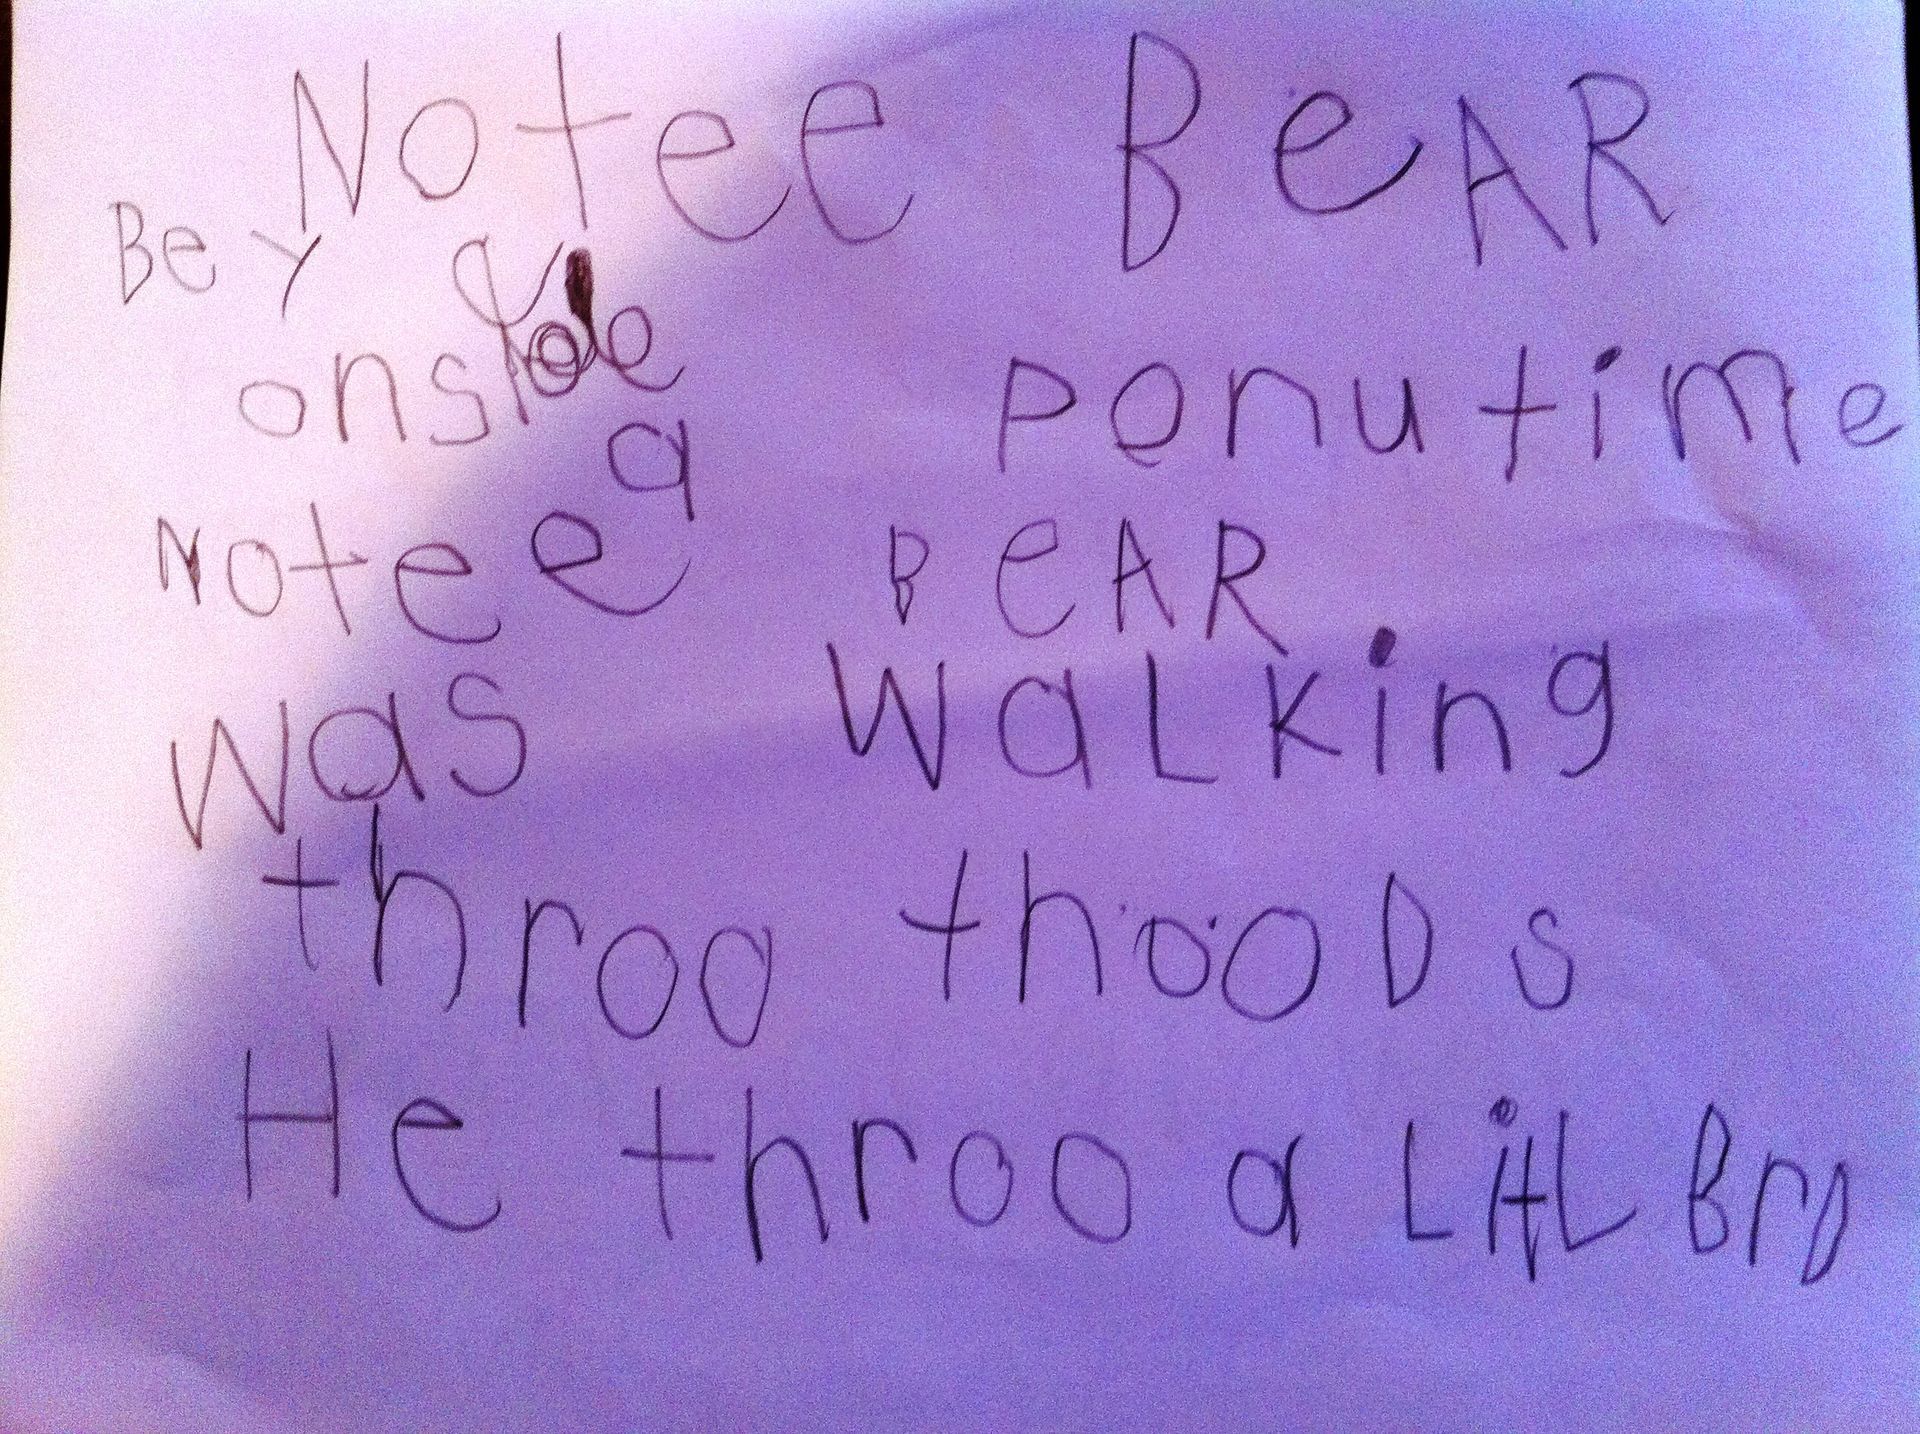 Notee BeAR
Bey
ons a penutime
Notee BeAR
was waLking
throo thooDs
He throo a LitL BrD